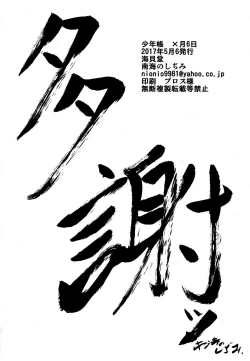 少年帳　×月6日
2017年5月6発行
海貝堂
南海のしぢみ
nionio9981@yahoo.co.jp
印刷　プロス様
無断複製転載等禁止
多謝ッ
南海の
しぢみ